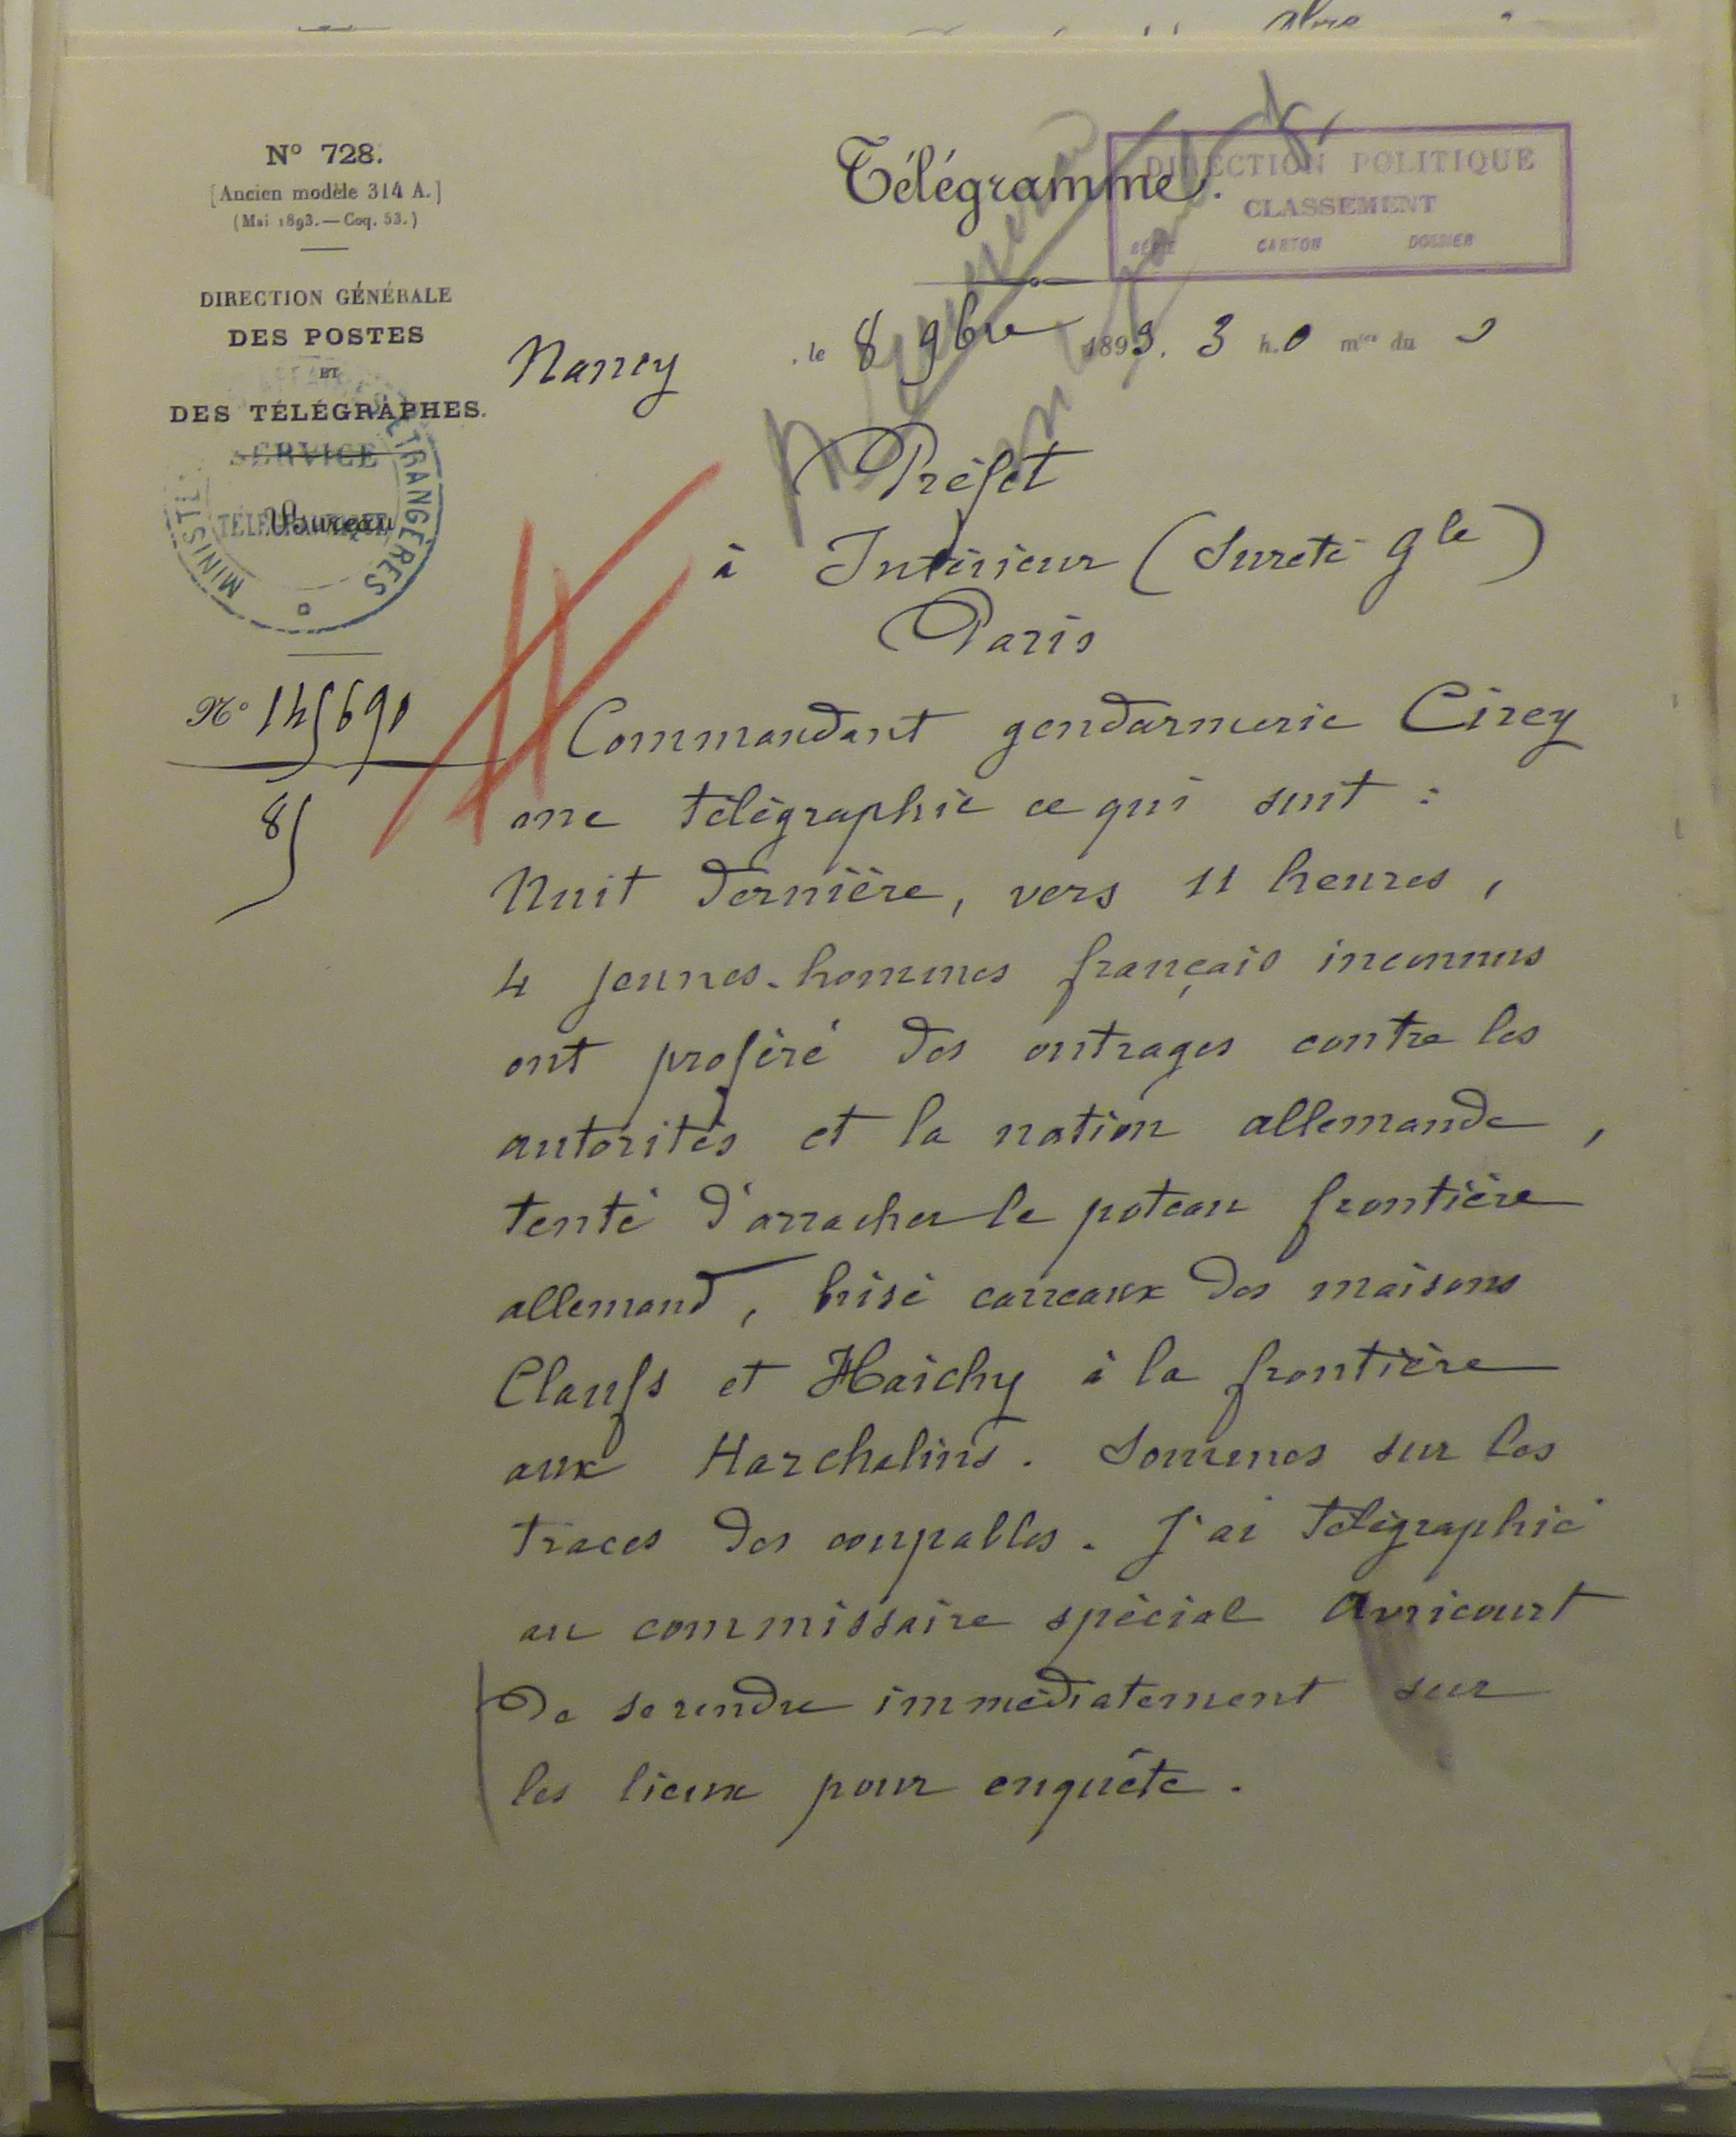 N° 728.
[Ancien modèle 314 A.]
(Mai 1893.—Coq. 53.)
DIRECTION GÉNÉRALE
DES POSTES
ET
DES TÉLÉGRAPHES.
SERVICE
TÉLÉGRAPHIQUE
Bureau
MINISTÈ AFFAI ÉTRANGÈRES
Télégramme.
DIRECTION POLITIQUE
CLASSEMENT
SÉRIE CARTON DOSSIER
Nancy, le 8 9bre 1893. 3 h. 0 mtes du
Préfet
à Intérieur (Sureté Gle)
Paris
N° 145690
85
Commandant gendarmerie Cirey
me télégraphie ce qui suit :
Nuit dernière, vers 11 heures,
4 jeunes-hommes français inconnus
ont proféré des outrages contre les
autorités et la nation allemande,
tenté d'arracher le poteau frontière
allemand, brisé carreaux des maisons
Clauss et Haichy à la frontière
aux Harchelins. Sommes sur les
traces des coupables. J'ai télégraphié
au commissaire spécial Avricourt
de se rendre immédiatement sur
les lieux pour enquête.